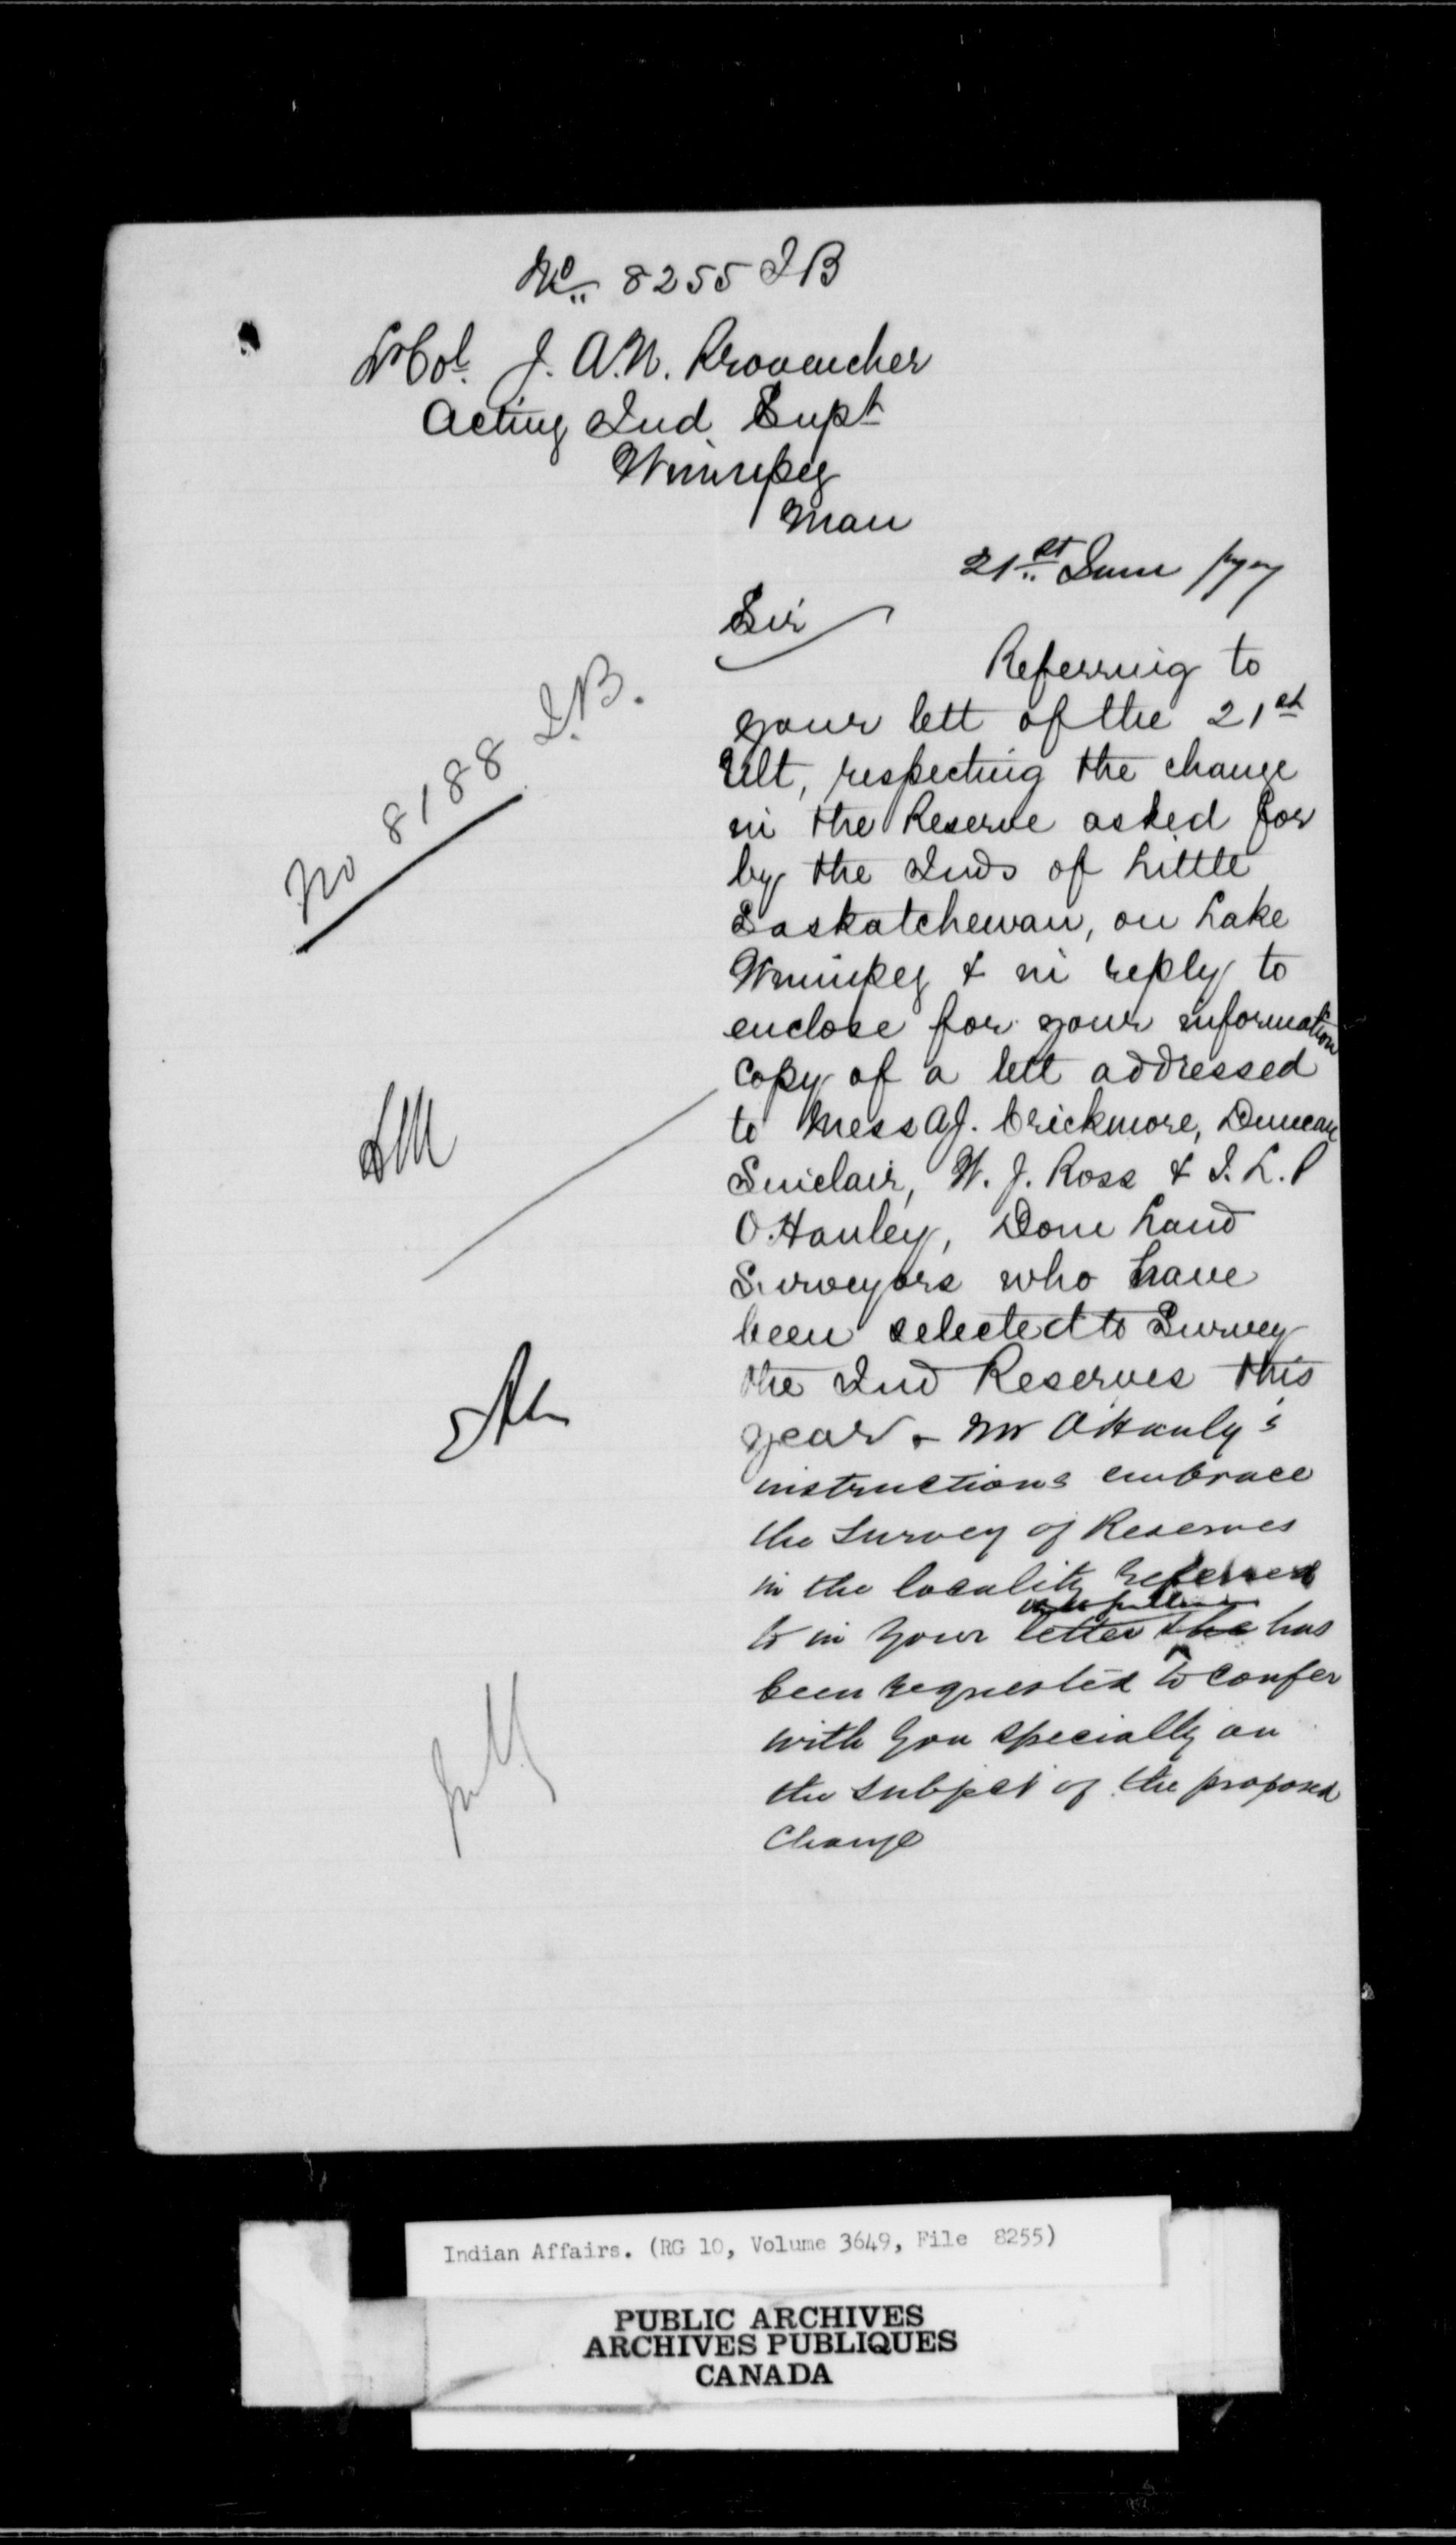 No. 8255 I B
Lt Col. J. A. N. Provencher
Acting Ind. Supt
Winnipeg
Man
21st June /77
Sir
Referring to
your lett of the 21st
Ult, respecting the change
in the Reserve asked for
by the Inds of Little
Saskatchewan, on Lake
Winnipeg & in reply to
enclose for your information
Copy of a lett addressed
to Mess A J. Crickmore, Duncan
Sinclair, W. J. Ross & J. L. P
O.Hanley, Dom Land
Surveyors who have
been selected to Survey
the Ind Reserves this
year - Mr O'Hanly's
instructions embrace
the Survey of Reserves
in the locality referred
to in your letter the has
been requested to confer
with you specially on
the subject of the proposed
Change
No 8188 I.B.
Indian Affairs. (RG 10, Volume 3649, File 8255)
PUBLIC ARCHIVES
ARCHIVES PUBLIQUES
CANADA